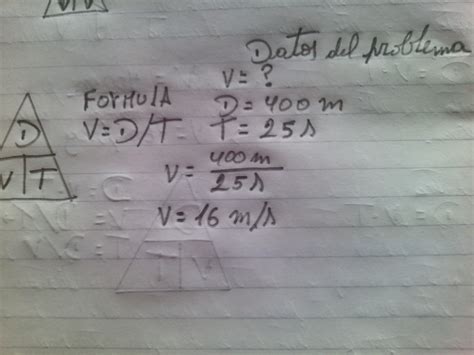 Datos del problema
V = ?
FORMULA D = 400 m
V = D/T T = 25 s
D
V T
V = 400 m / 25 s
V = 16 m/s
T V